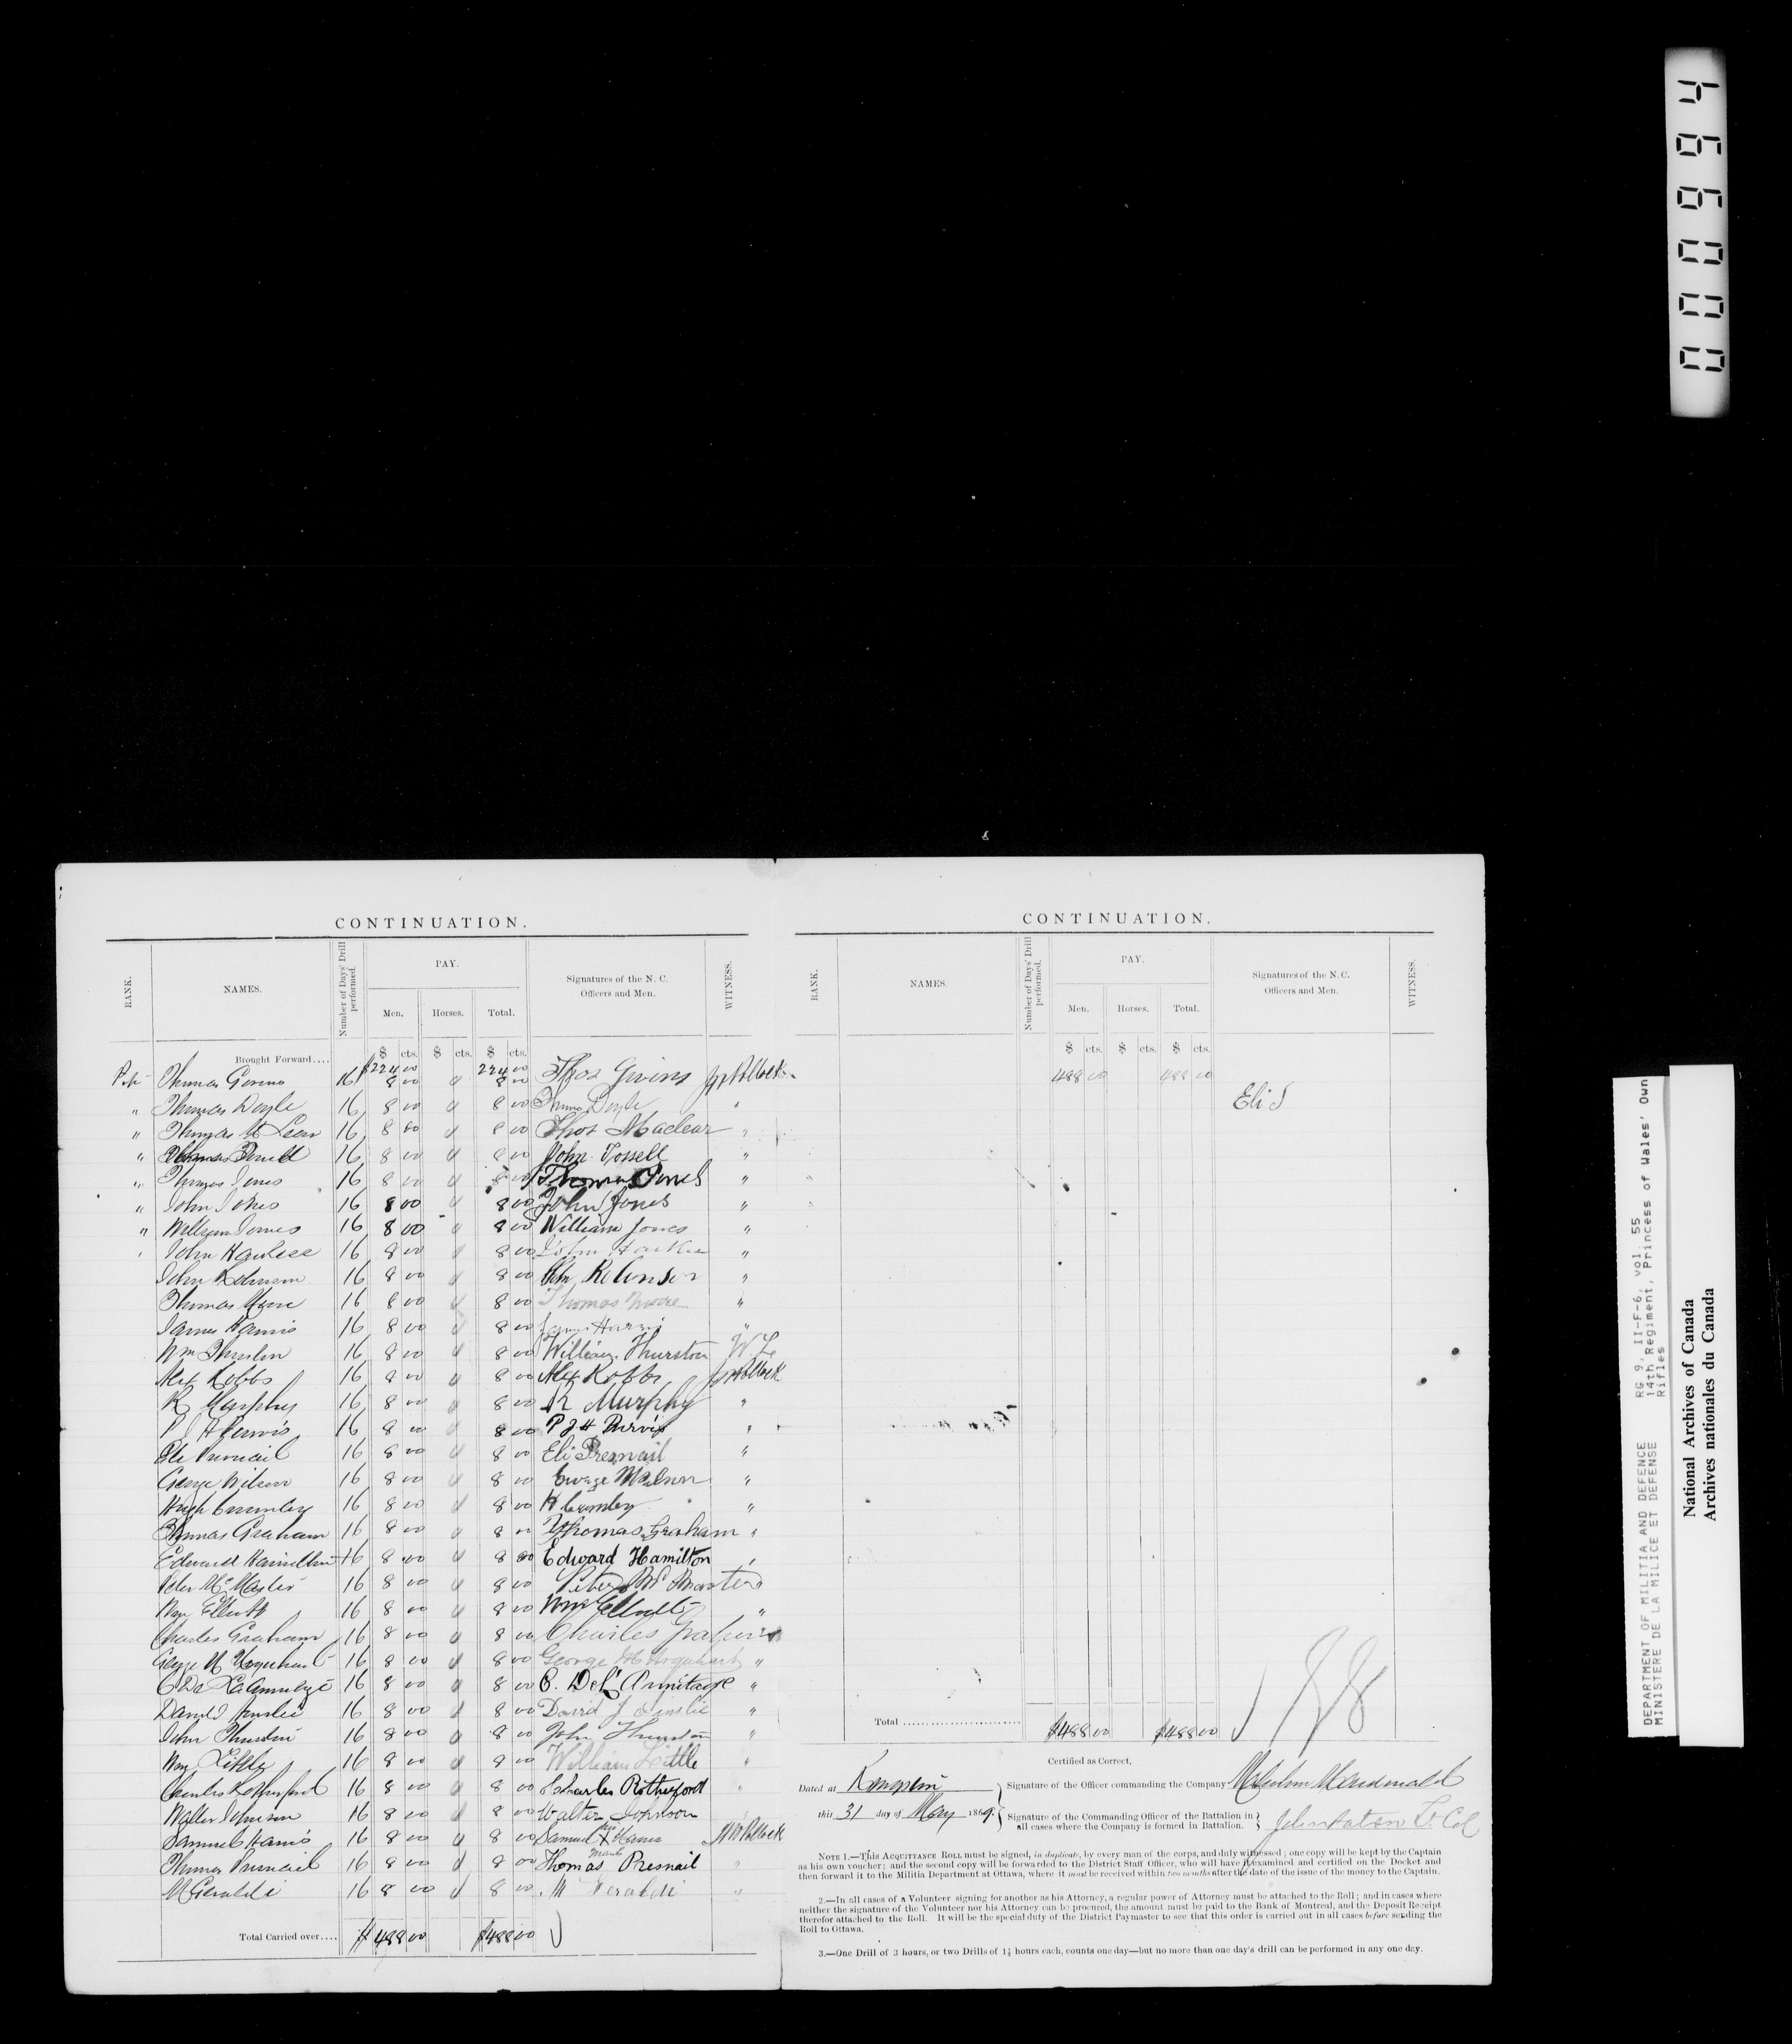 CONTINUATION.
RANK.
NAMES.
Number of Days' Drill performed.
PAY.
Men.
Horses.
Total.
Signatures of the N. C. Officers and Men.
WITNESS.
$ cts. $ cts. $ cts.
Brought Forward.... $224 00 224 00
Thomas Givins 16 8 00 8 00 Thos Givins
" Thomas Doyle 16 8 00 8 00 Thomas Doyle "
" Thomas McLean 16 8 00 8 00 Thos Maclear "
" 16 8 00 8 00 John Tossell "
" Thomas Jones 16 8 00 8 00 Thomas Jones "
" John Jones 16 8 00 8 00 John Jones "
" William Jones 16 8 00 8 00 William Jones "
John 16 8 00 8 00 John "
John Robinson 16 8 00 8 00 John Robinson "
Thomas Moore 16 8 00 8 00 Thomas Moore "
James Harris 16 8 00 8 00 James Harris "
Wm Thurston 16 8 00 8 00 William Thurston
Alex Robbs 16 8 00 8 00 Alex Robbs
R Murphy 16 8 00 8 00 R Murphy "
P J H Purvis 16 8 00 8 00 P J H Purvis "
Eli Presnail 16 8 00 8 00 Eli Presnail "
George Wilson 16 8 00 8 00 George Wilson "
Hugh Crumley 16 8 00 8 00 H Crumley "
Thomas Graham 16 8 00 8 00 Thomas Graham "
Edward Hamilton 16 8 00 8 00 Edward Hamilton "
Peter McMaster 16 8 00 8 00 Peter McMaster
Wm Elliott 16 8 00 8 00 Wm Elliott "
Charles Graham 16 8 00 8 00 Charles Graham
George M Urquhart 16 8 00 8 00 George M Urquhart "
Armitage 16 8 00 8 00 Armitage "
David Ainslie 16 8 00 8 00 David J Ainslie "
John Thurston 16 8 00 8 00 John Thurston "
Wm Little 16 8 00 8 00 William Little "
Charles Rotherford 16 8 00 8 00 Charles Rotherford "
Walter Johnson 16 8 00 8 00 Walter Johnson
Samuel Harris 16 8 00 8 00 Samuel his X mark Harris
Thomas Presnail 16 8 00 8 00 Thomas Presnail "
M Geraldi 16 8 00 8 00 M Geraldi "
Total Carried over.... $488 00 $488 00
CONTINUATION.
RANK.
NAMES.
Number of Days' Drill performed.
PAY.
Men.
Horses.
Total.
Signatures of the N. C. Officers and Men.
WITNESS.
$ cts. $ cts. $ cts.
488 00 488 00
Eli
Total ........................ $488 00 $488 00
Certified as Correct,
Dated at
this 31 day of May 1869.
Signature of the Officer commanding the Company Malcolm Macdonald
Signature of the Commanding Officer of the Battalion in all cases where the Company is formed in Battalion. John Paton Lt Col
NOTE 1.—This ACQUITTANCE ROLL must be signed, in duplicate, by every man of the corps, and duly witnessed; one copy will be kept by the Captain
as his own voucher; and the second copy will be forwarded to the District Staff Officer, who will have it examined and certified on the Docket and
then forward it to the Militia Department at Ottawa, where it must be received within two months after the date of the issue of the money to the Captain.
2.—In all cases of a Volunteer signing for another as his Attorney, a regular power of Attorney must be attached to the Roll; and in cases where
neither the signature of the Volunteer nor his Attorney can be procured, the amount must be paid to the Bank of Montreal, and the Deposit Receipt
therefor attached to the Roll. It will be the special duty of the District Paymaster to see that this order is carried out in all cases before sending the
Roll to Ottawa.
3.—One Drill of 3 hours, or two Drills of 1½ hours each, counts one day—but no more than one day's drill can be performed in any one day.
DEPARTMENT OF MILITIA AND DEFENCE RG 9, II-F-6, vol. 55
MINISTERE DE LA MILICE ET DEFENSE 14th Regiment, Princess of Wales' Own
Rifles
National Archives of Canada
Archives nationales du Canada